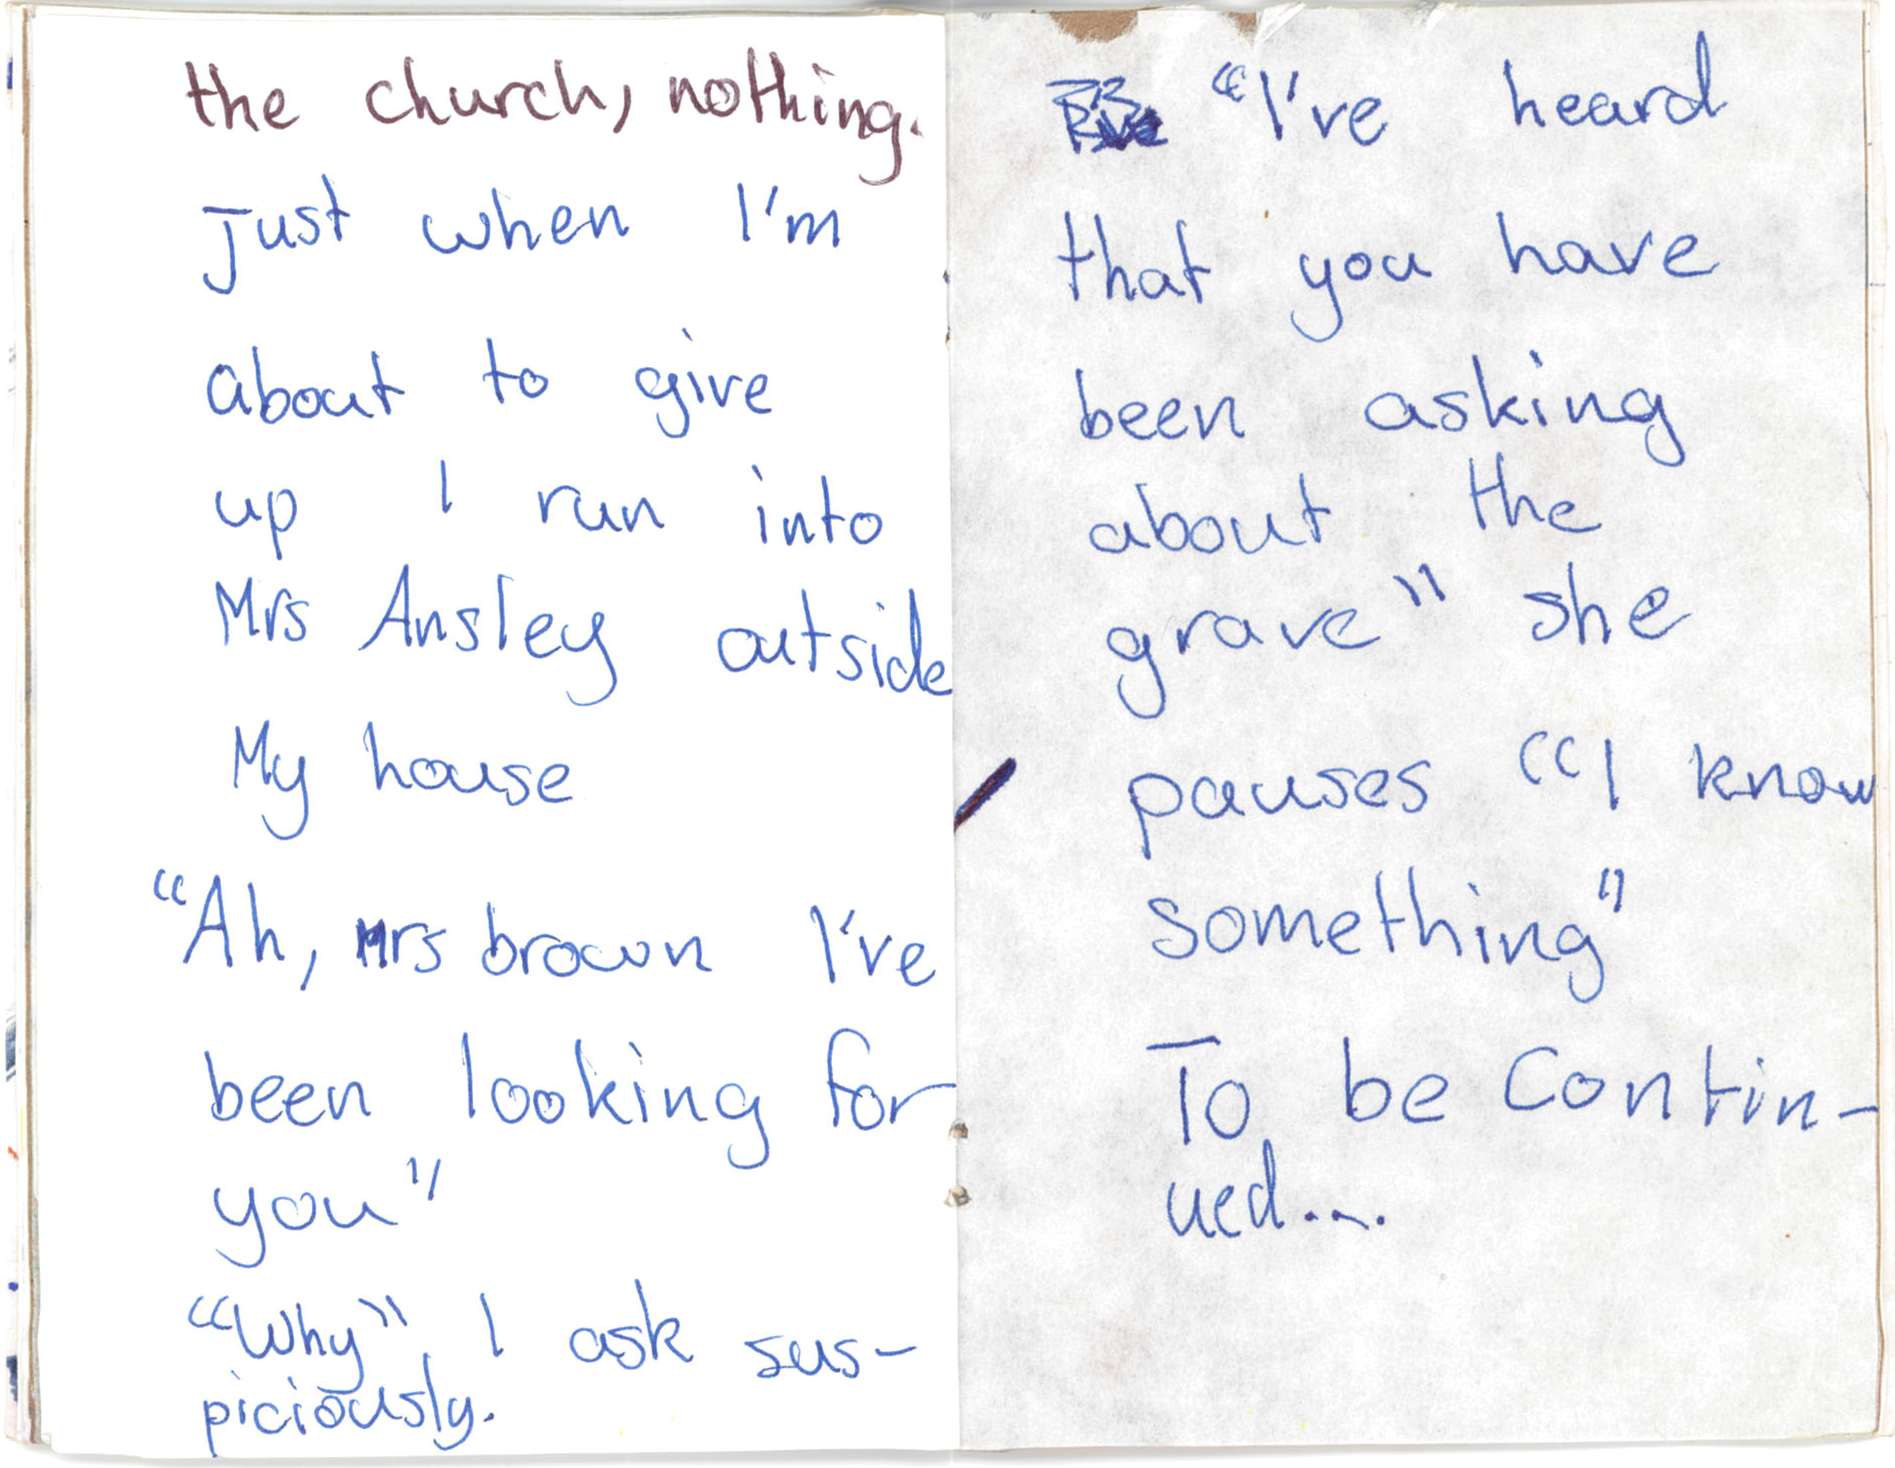 the church, nothing.
Just when I'm
about to give
up I run into
Mrs Ansley outside
My house
"Ah, Mrs brown I've
been looking for
you"
"Why", I ask sus-
piciously.
"I've heard
that you have
been asking
about the
grave" she
pauses "I know
something"
To be Contin-
ued...